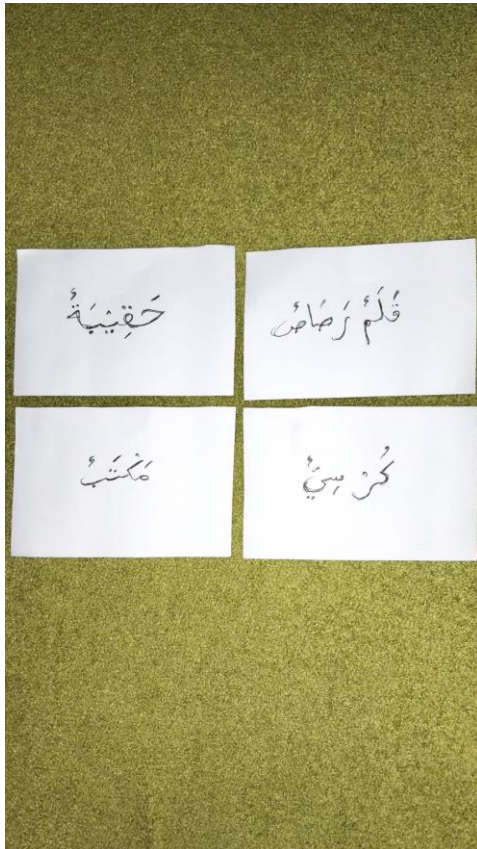 قَلَمُ رَصَاصُ
حَقِيْبَةُ
كُرْسِيُ
مَكْتَبُ